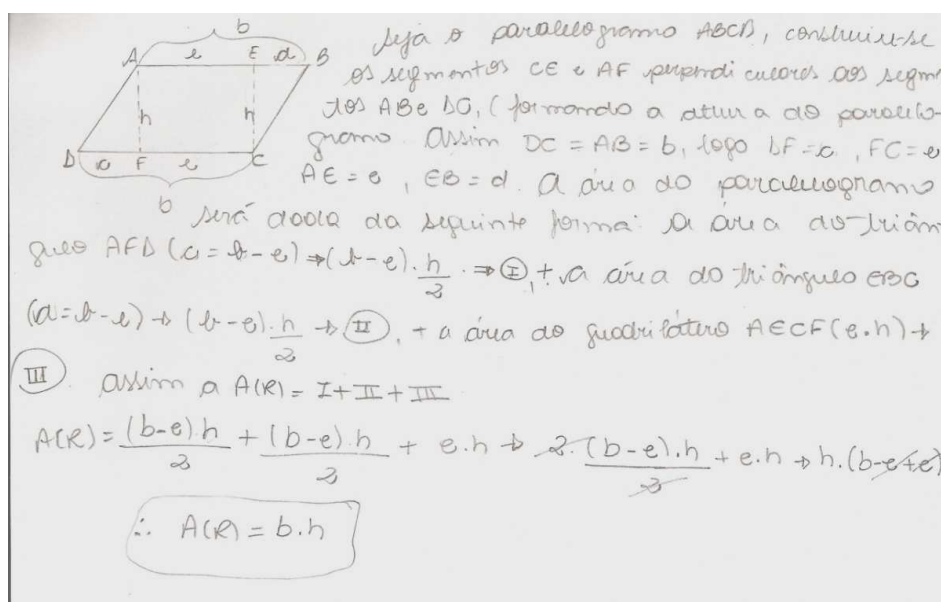 b
A e E d B
h h
D c F e C
b
Seja o paralelogramo ABCD, construiu-se
os segmentos CE e AF perpendiculares aos segm
tos AB e DC, (formando a altura do paralelo-
gramo. Assim DC = AB = b, logo DF = c, FC = e
AE = e, EB = d. A área do paralelogramo
será dada da seguinte forma: A área do triân
gulo AFD (c = b - e) → (b - e) . h/2 . → I, + a área do triângulo EBC
(d = b - e) → (b - e) . h/2 → II, + a área do quadrilátero AECF (e . h) →
III. assim a A(R) = I + II + III
A(R) = (b-e).h/2 + (b-e).h/2 + e.h → 2.(b-e).h/2 + e.h → h.(b-e+e)
∴ A(R) = b.h